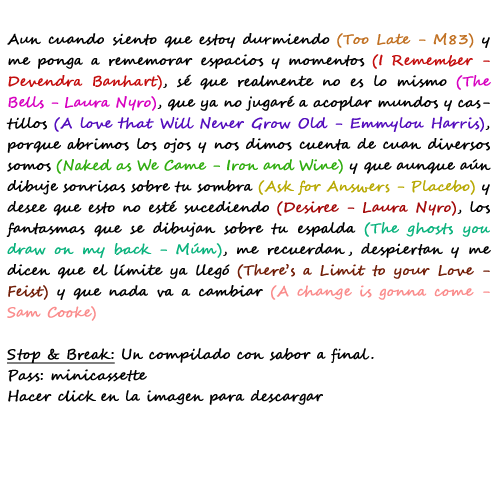 Aun cuando siento que estoy durmiendo (Too Late - M83) y
me ponga a rememorar espacios y momentos (I Remember -
Devendra Banhart), sé que realmente no es lo mismo (The
Bells - Laura Nyro), que ya no jugaré a acoplar mundos y cas-
tillos (A love that Will Never Grow Old - Emmylou Harris),
porque abrimos los ojos y nos dimos cuenta de cuan diversos
somos (Naked as We Came - Iron and Wine) y que aunque aún
dibuje sonrisas sobre tu sombra (Ask for Answers - Placebo) y
desee que esto no esté sucediendo (Desiree - Laura Nyro), los
fantasmas que se dibujan sobre tu espalda (The ghosts you
draw on my back - Múm), me recuerdan, despiertan y me
dicen que el límite ya llegó (There's a Limit to your Love -
Feist) y que nada va a cambiar (A change is gonna come -
Sam Cooke)
Stop & Break: Un compilado con sabor a final.
Pass: minicassette
Hacer click en la imagen para descargar